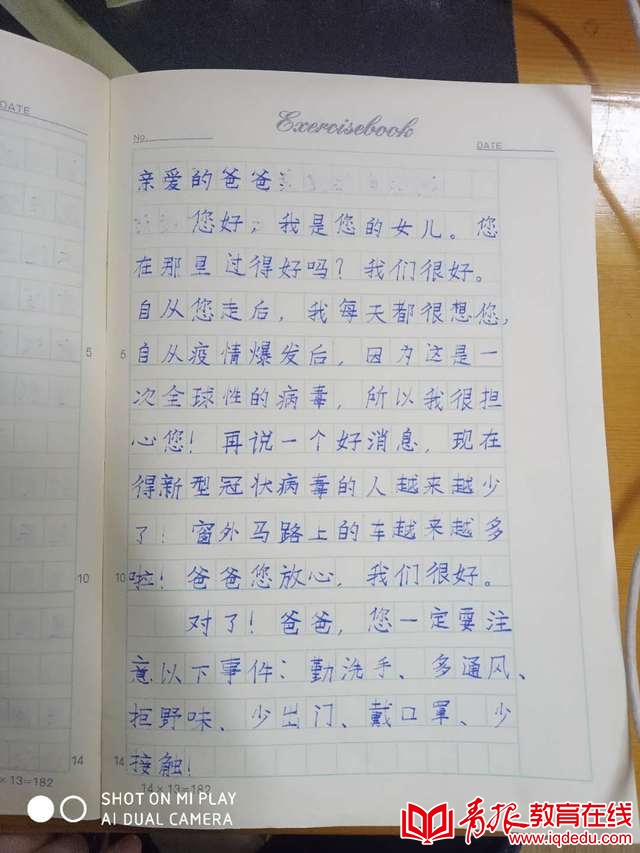 DATE
Exercisebook
No.
DATE
亲爱的爸爸：
您好，我是您的女儿。您
在那里过得好吗？我们很好。
自从您走后，我每天都很想您，
5
5
自从疫情爆发后，因为这是一
次全球性的病毒，所以我很担
心您！再说一个好消息，现在
得新型冠状病毒的人越来越少
了！窗外马路上的车越来越多
10
10
啦！爸爸您放心，我们很好。
对了！爸爸，您一定要注
意以下事件：勤洗手、多通风、
拒野味、少出门、戴口罩、少
14
14
接触！
×13=182
14×13=182
SHOT ON MI PLAY
AI DUAL CAMERA
青报教育在线
www.iqdedu.com